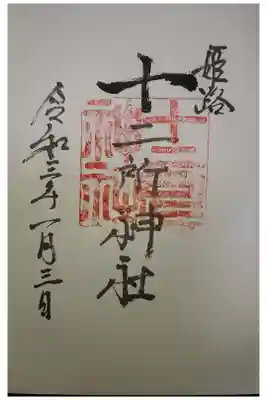 姫路
十二所神社
令和三年一月三日